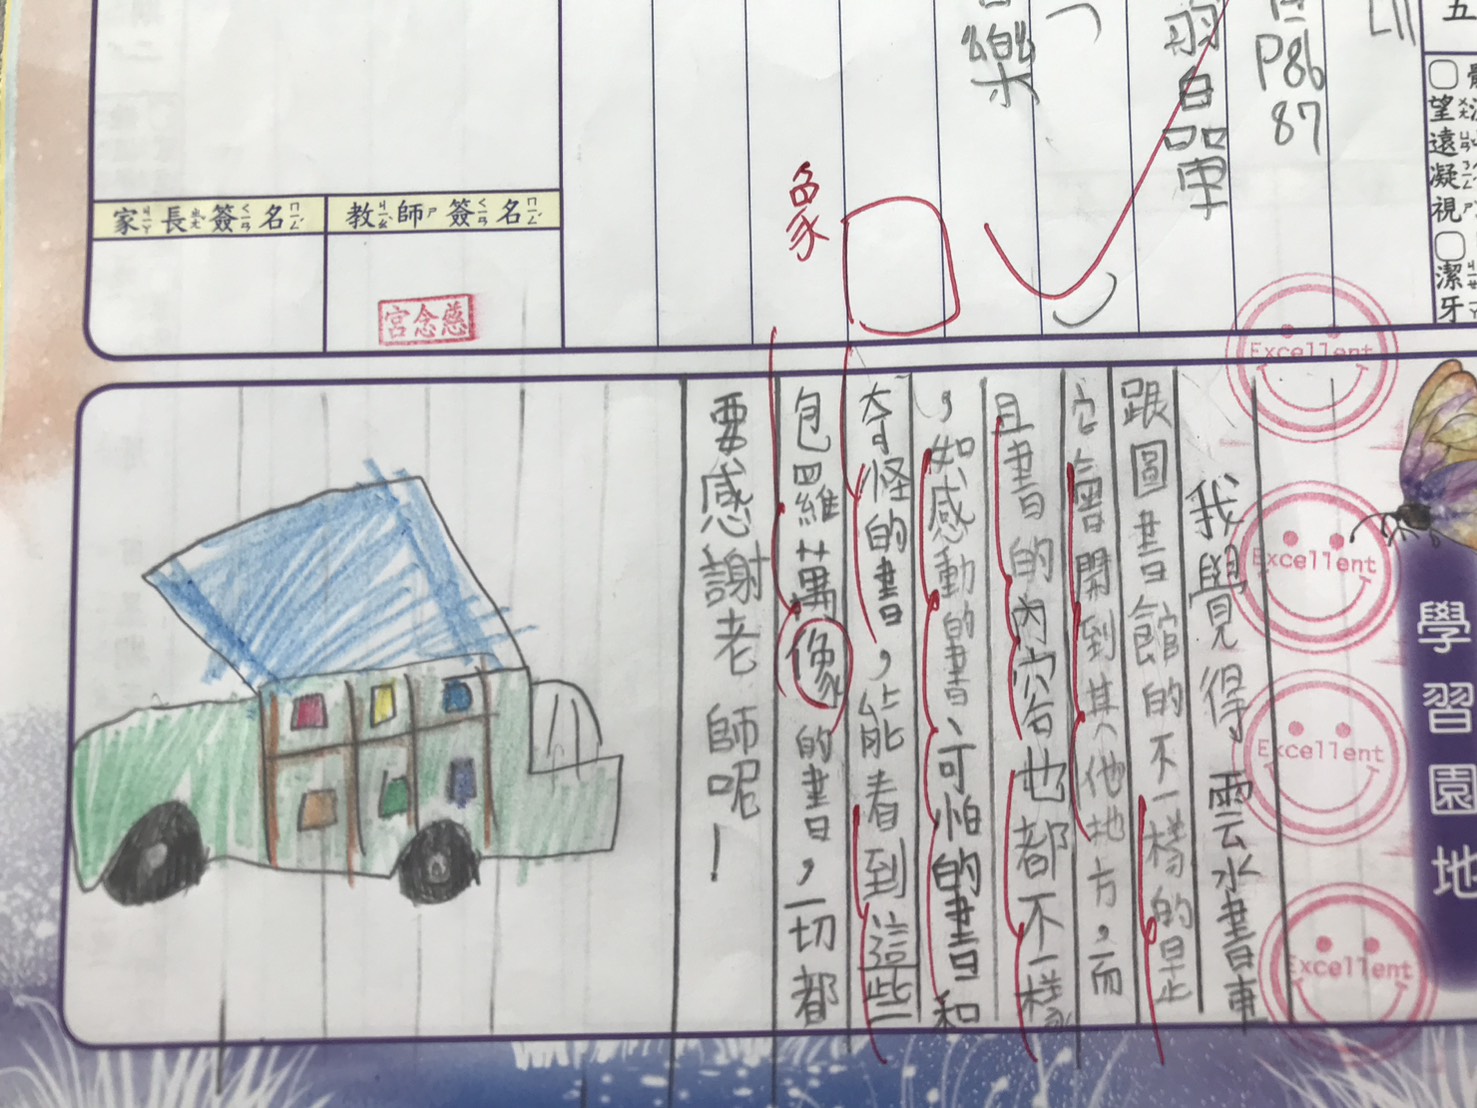 五
望遠凝視
潔牙
P86
87
單
樂
象
教師簽名
宮念慈
家長簽名
學習園地
Excellent
Excellent
Excellent
Excellent
我覺得雲水書車
跟圖書館的不一樣的是
它會開到其他地方，而
且書的內容也都不一樣
，如感動的書、可怕的書和
奇怪的書，能看到這些
包羅萬像的書，一切都
要感謝老師呢！